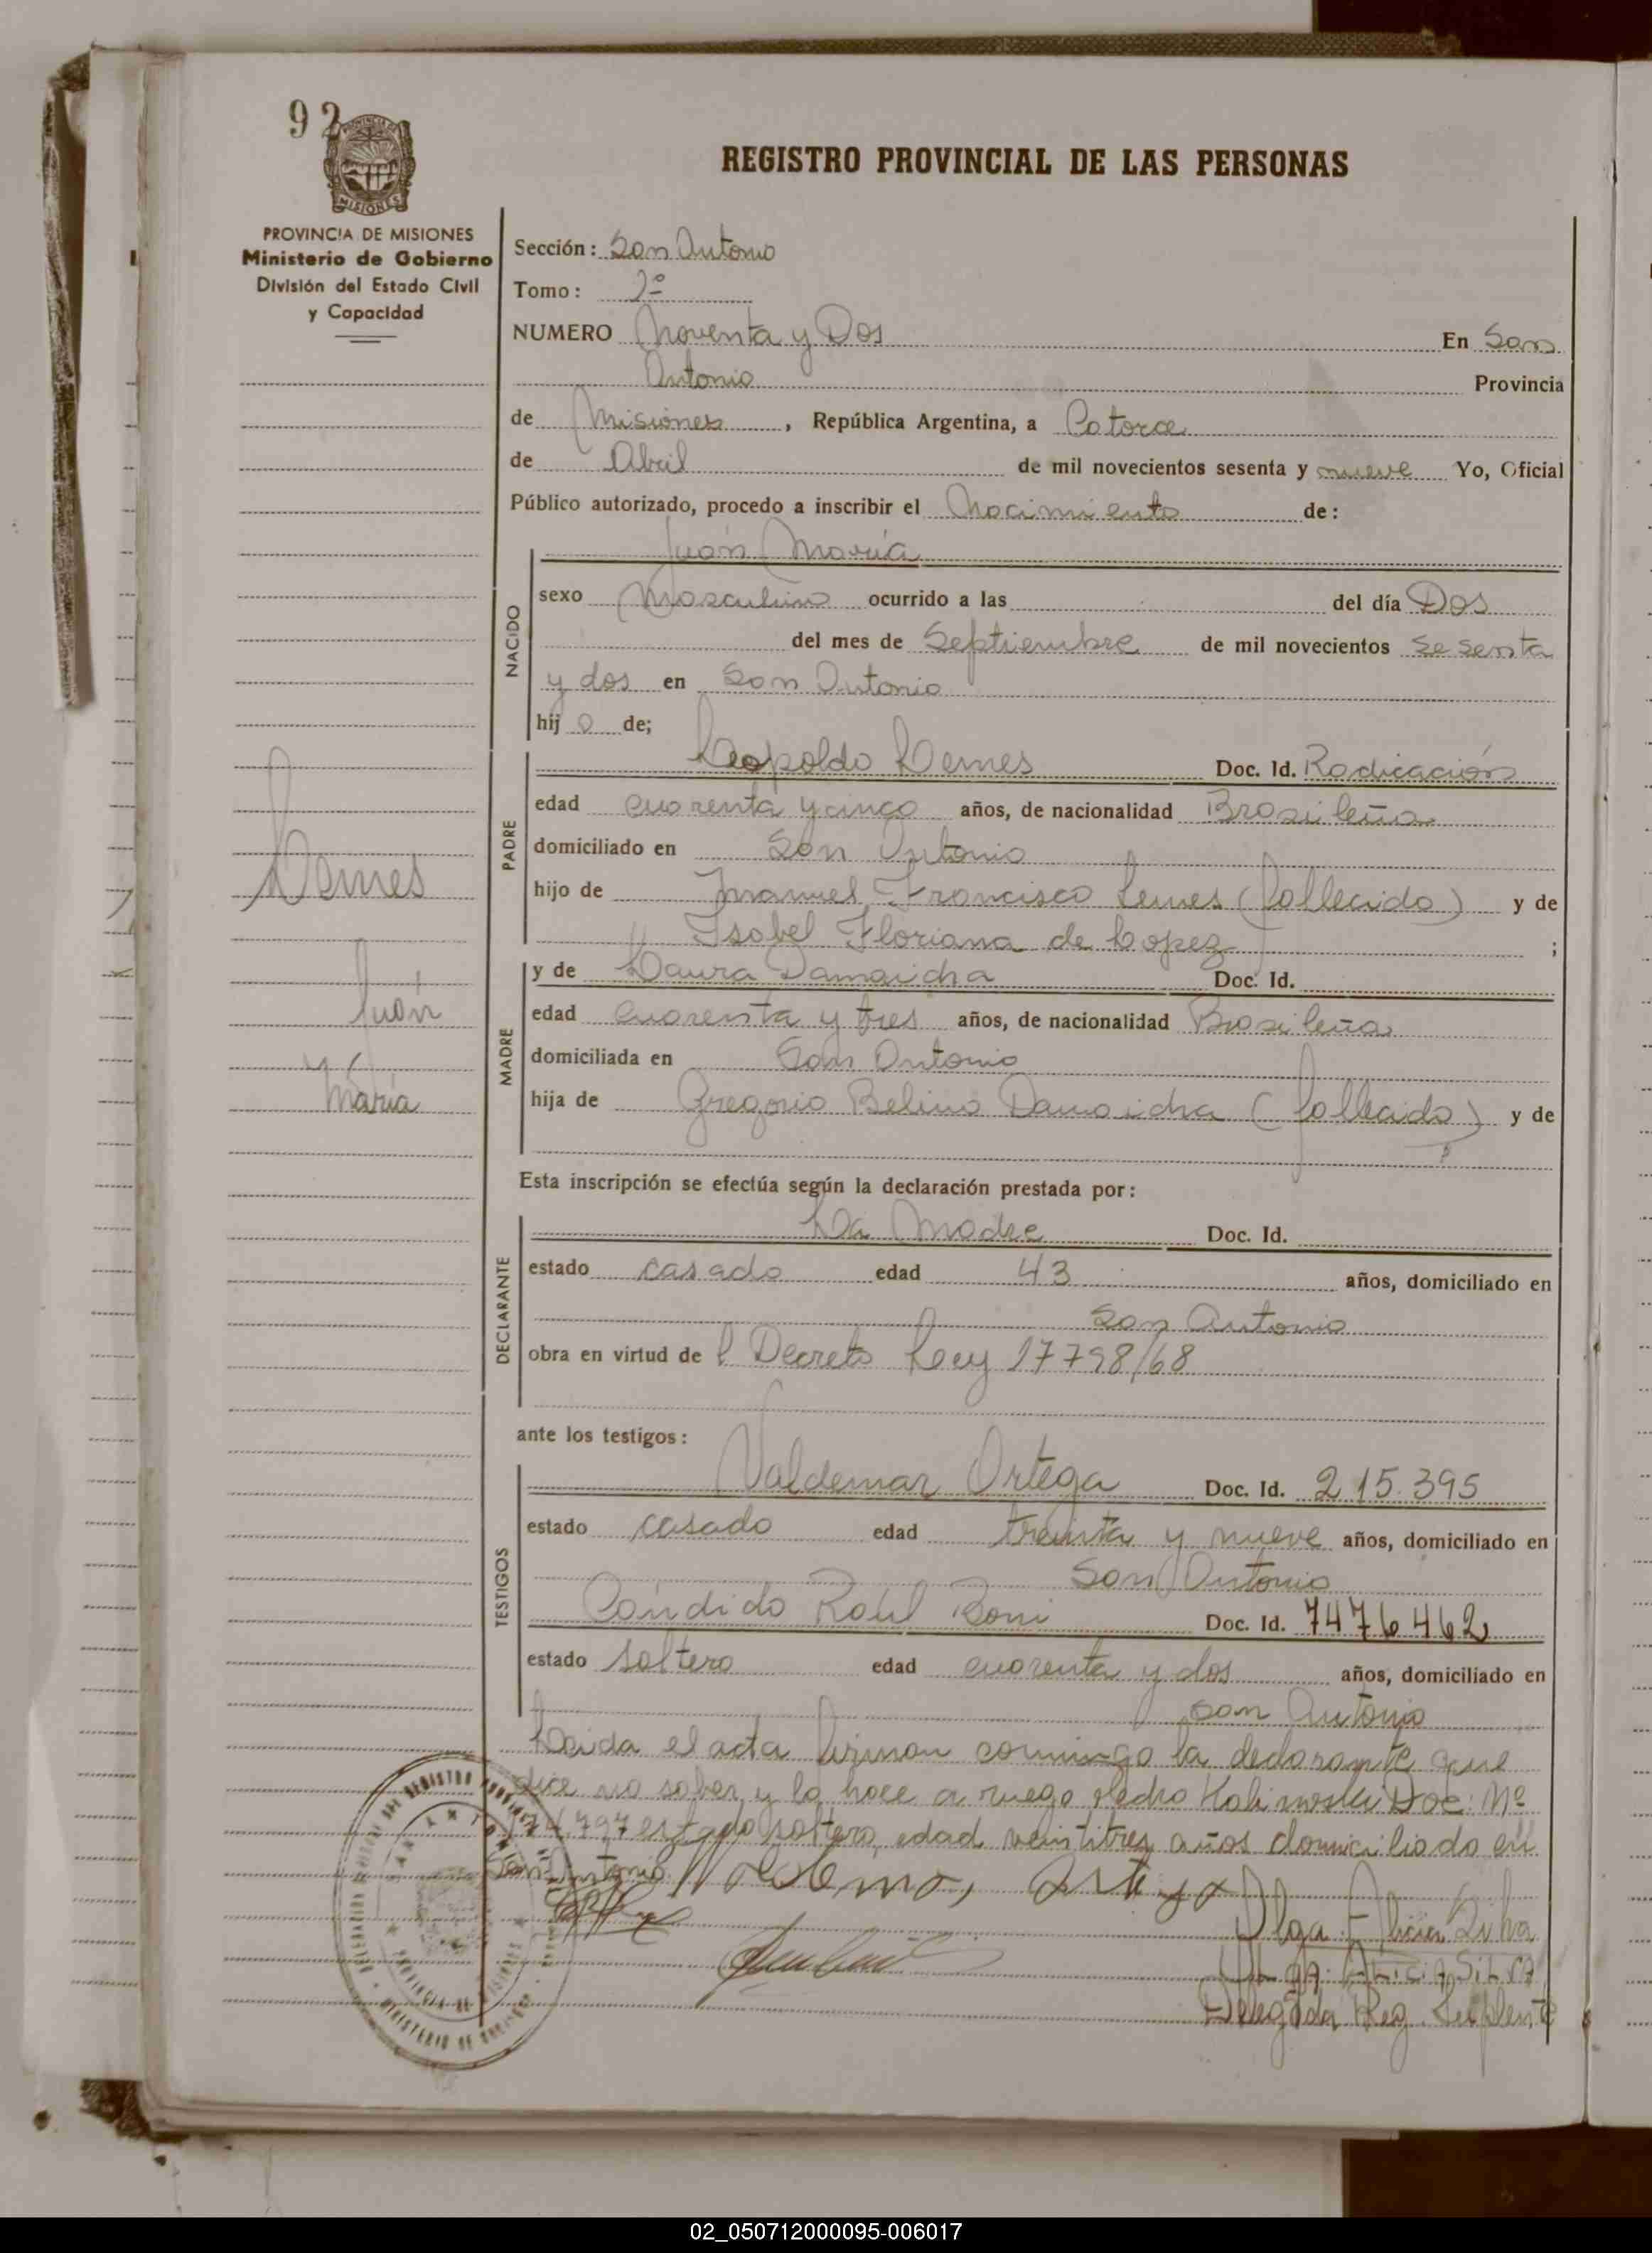 92
PROVINCIA DE
MISIONES
PROVINCIA DE MISIONES
Ministerio de Gobierno
División del Estado Civil
y Capacidad
REGISTRO PROVINCIAL DE LAS PERSONAS
Sección: San Antonio
Tomo: 2º
NUMERO Noventa y Dos En San
Antonio Provincia
de Misiones, República Argentina, a Catorce
de Abril de mil novecientos sesenta y nueve Yo, Oficial
Público autorizado, procedo a inscribir el Nacimiento de:
Juán María
NACIDO
sexo Masculino ocurrido a las del día Dos
del mes de Septiembre de mil novecientos sesenta
y dos en San Antonio
hijo de;
PADRE
Leopoldo Lemes Doc. Id. Radicación
edad cuarenta y cinco años, de nacionalidad Brasileña
domiciliado en San Antonio
hijo de Manuel Francisco Lemes (fallecido) y de
Isabel Floriana de Lopez ;
MADRE
y de Laura Damaicha Doc. Id.
edad cuarenta y tres años, de nacionalidad Brasileña
domiciliada en San Antonio
hija de Gregorio Belino Damaicha (fallecido) y de
Lemes
Juán
María
Esta inscripción se efectúa según la declaración prestada por:
DECLARANTE
La Madre Doc. Id.
estado casado edad 43 años, domiciliado en
San Antonio
obra en virtud de l Decreto Ley 17798/68
ante los testigos:
TESTIGOS
Valdemar Ortega Doc. Id. 215.395
estado casado edad treinta y nueve años, domiciliado en
San Antonio
Cándido Raúl Doc. Id. 7476462
estado soltero edad cuarenta y dos años, domiciliado en
San Antonio
Leida el acta firman conmigo la declarante que
dice no saber y lo hace a ruego Pedro Kalinoski Doc: Nº
estado soltero, edad veintitres años domiciliado en
San Antonio
Olga Alicia Silva
Olga Alicia Silva
Delegada Reg. Suplente
02_050712000095-006017